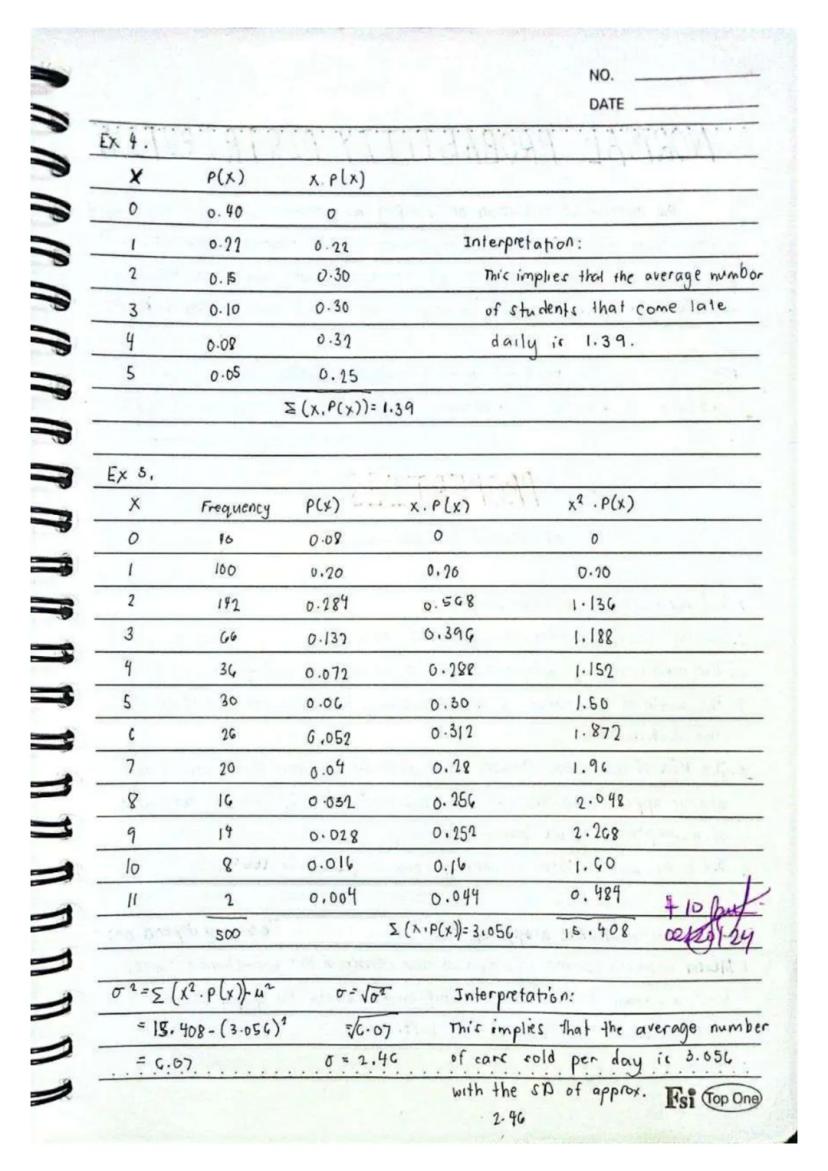 NO.
DATE
Ex 4.
X P(x) x. P(x)
0 0.40 0
1 0.22 0.22 Interpretation:
2 0.15 0.30 This implies that the average number
3 0.10 0.30 of students that come late
4 0.08 0.32 daily is 1.39.
5 0.05 0.25
Σ (x.P(x)) = 1.39
Ex 5.
X Frequency P(x) x. P(x) x² . P(x)
0 0.08 0 0
1 100 0.20 0.20 0.20
2 142 0.284 0.568 1.136
3 66 0.132 0.396 1.188
4 36 0.072 0.288 1.152
5 30 0.06 0.30 1.50
6 26 0.052 0.312 1.872
7 20 0.04 0.28 1.96
8 16 0.032 0.256 2.048
9 14 0.028 0.252 2.268
10 8 0.016 0.16 1.60
11 2 0.004 0.044 0.484
500 Σ (x.P(x)) = 3.056 15.408
+10
02/20/24
σ² = Σ (x². P(x)) - μ² σ = √σ² Interpretation:
= 15.408 - (3.056)² = √6.07 This implies that the average number
= 6.07 σ = 2.46 of cars sold per day is 3.056
with the SD of approx.
2.46
Fsi Top One